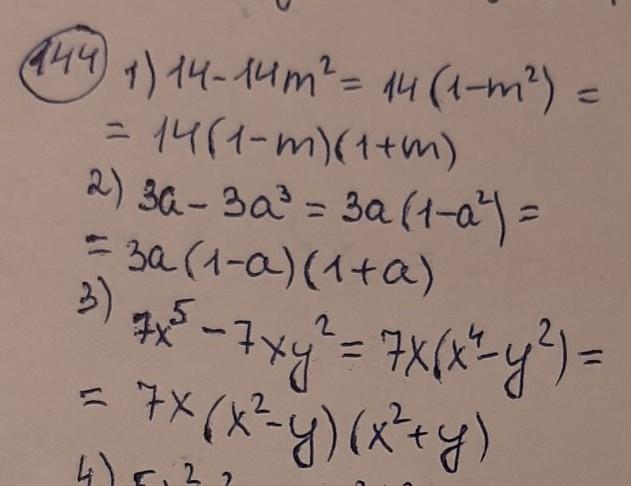 144 1) 14 - 14m² = 14(1-m²) =
= 14(1-m)(1+m)
2) 3a - 3a³ = 3a(1-a²) =
= 3a(1-a)(1+a)
3)
7x⁵ - 7xy² = 7x(x⁴-y²) =
= 7x(x²-y)(x²+y)
4)